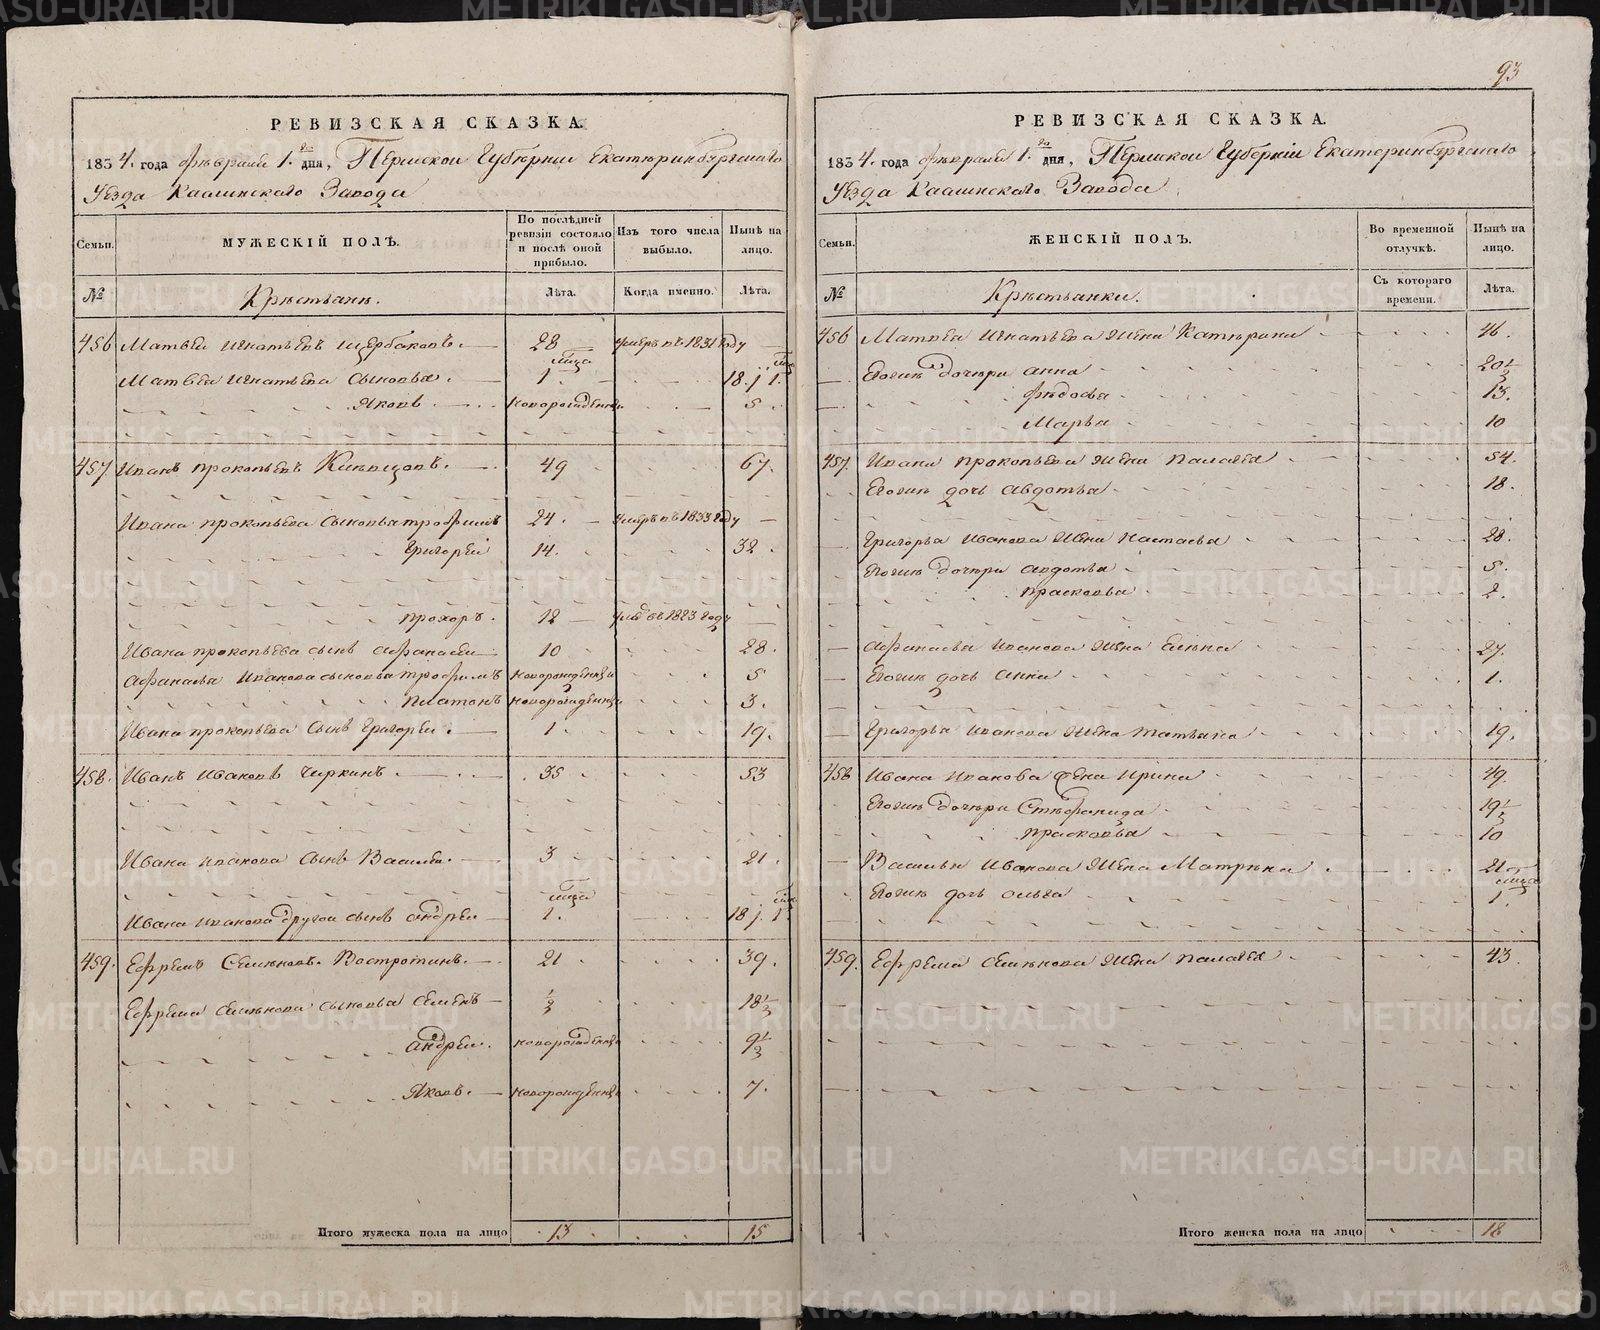 93
РЕВИЗСКАЯ СКАЗКА.
1834. года февраля 1. го дня, Пермской Губернии Екатеринбургскаго
Уезда Каслинскаго Завода
Семьи. МУЖЕСКІЙ ПОЛЪ. По послѣдней ревизіи состояло и послѣ оной прибыло. Изъ того числа выбыло. Нынѣ на лицо.
№ Крестьяне. Лѣта. Когда именно. Лѣта.
456 Матвей Игнатьевъ Щербаковъ. 28 умеръ въ 1831 году
Матвея Игнатьева сыновья. 1. 18. 1.
Яковъ новорожденны 5.
457 Иванъ Прокопьевъ 49 67.
Ивана Прокопьева сыновья трофимъ 24. умеръ въ 1833 году
Григорей 14. 32.
Прохоръ. 12 въ 1823 году
Ивана прокопьева сынъ Афанасей 10 28.
Афанасья Иванова сыновья трофимъ новорожденны 5
платонъ новорожденны 3.
Ивана прокопьева сынъ Григорей. 1 19.
458. Иванъ Ивановъ Чиркинъ. 35 53
Ивана Иванова сынъ Василей. 3 21.
Ивана Иванова другой сынъ андрей 1. 18. 1.
459. Ефремъ Семеновъ Востротинъ. 21 39.
Ефрема Семенова сыновья Семенъ 1/3 18 1/3
андрей. новорожденны 9 1/3
Яковъ. новорожденны 7.
Итого мужеска пола на лицо 13 15
РЕВИЗСКАЯ СКАЗКА.
1834. года февраля 1. го дня, Пермской Губерніи Екатеринбургскаго
Уезда Каслинскаго Завода
Семьи. ЖЕНСКІЙ ПОЛЪ. Во временной отлучкѣ. Нынѣ на лицо.
№ Крестьянки. Съ котораго времени. Лѣта.
456 Матвея Игнатьева жена Катерина 46.
Егожъ дочери анна 20 1/3
федосья 13.
Марья 10
457. Ивана прокопьева жена палагея 54.
Егожъ дочь авдотья 18.
Григорья Иванова жена настасья 28.
Егожъ дочери авдотья 5.
прасковья 2.
афанасья Иванова жена Елена 27.
Егожъ дочь анна 1.
Григорья Иванова жена татьяна 19.
458 Ивана Иванова жена Ирина 49.
Егожъ дочери Стефанида 19 1/3
прасковья 10
Василья Иванова жена Матрена 21
Егожъ дочь ольга 1.
459. Ефрема Семенова жена палагея 43.
Итого женска пола на лицо 18
METRIKI.GASO-URAL.RU